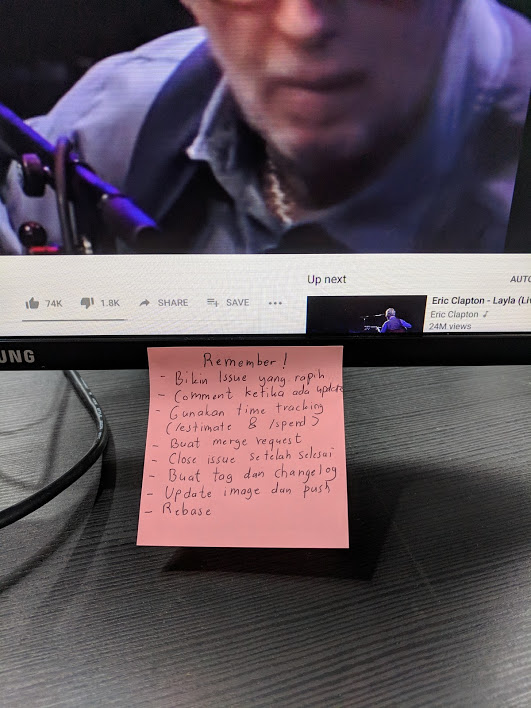 74K
1.8K
SHARE
SAVE
Up next
AUTO
Eric Clapton - Layla (Liv
Eric Clapton
24M views
UNG
Remember!
- Bikin Issue yang rapih
- Comment ketika ada update
- Gunakan time tracking
(/estimate & /spend)
- Buat merge request
- Close issue setelah selesai
- Buat tag dan changelog
- Update image dan push
- Rebase